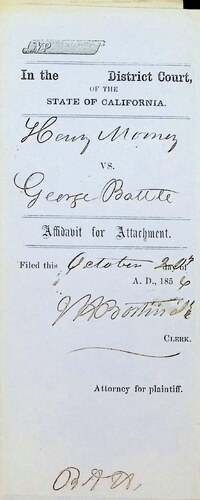 In the District Court,
OF THE
STATE OF CALIFORNIA.
Henry Mooney
VS.
George Battle
Affidavit for Attachment.
Filed this October day of
A. D., 1856
CLERK.
Attorney for plaintiff.